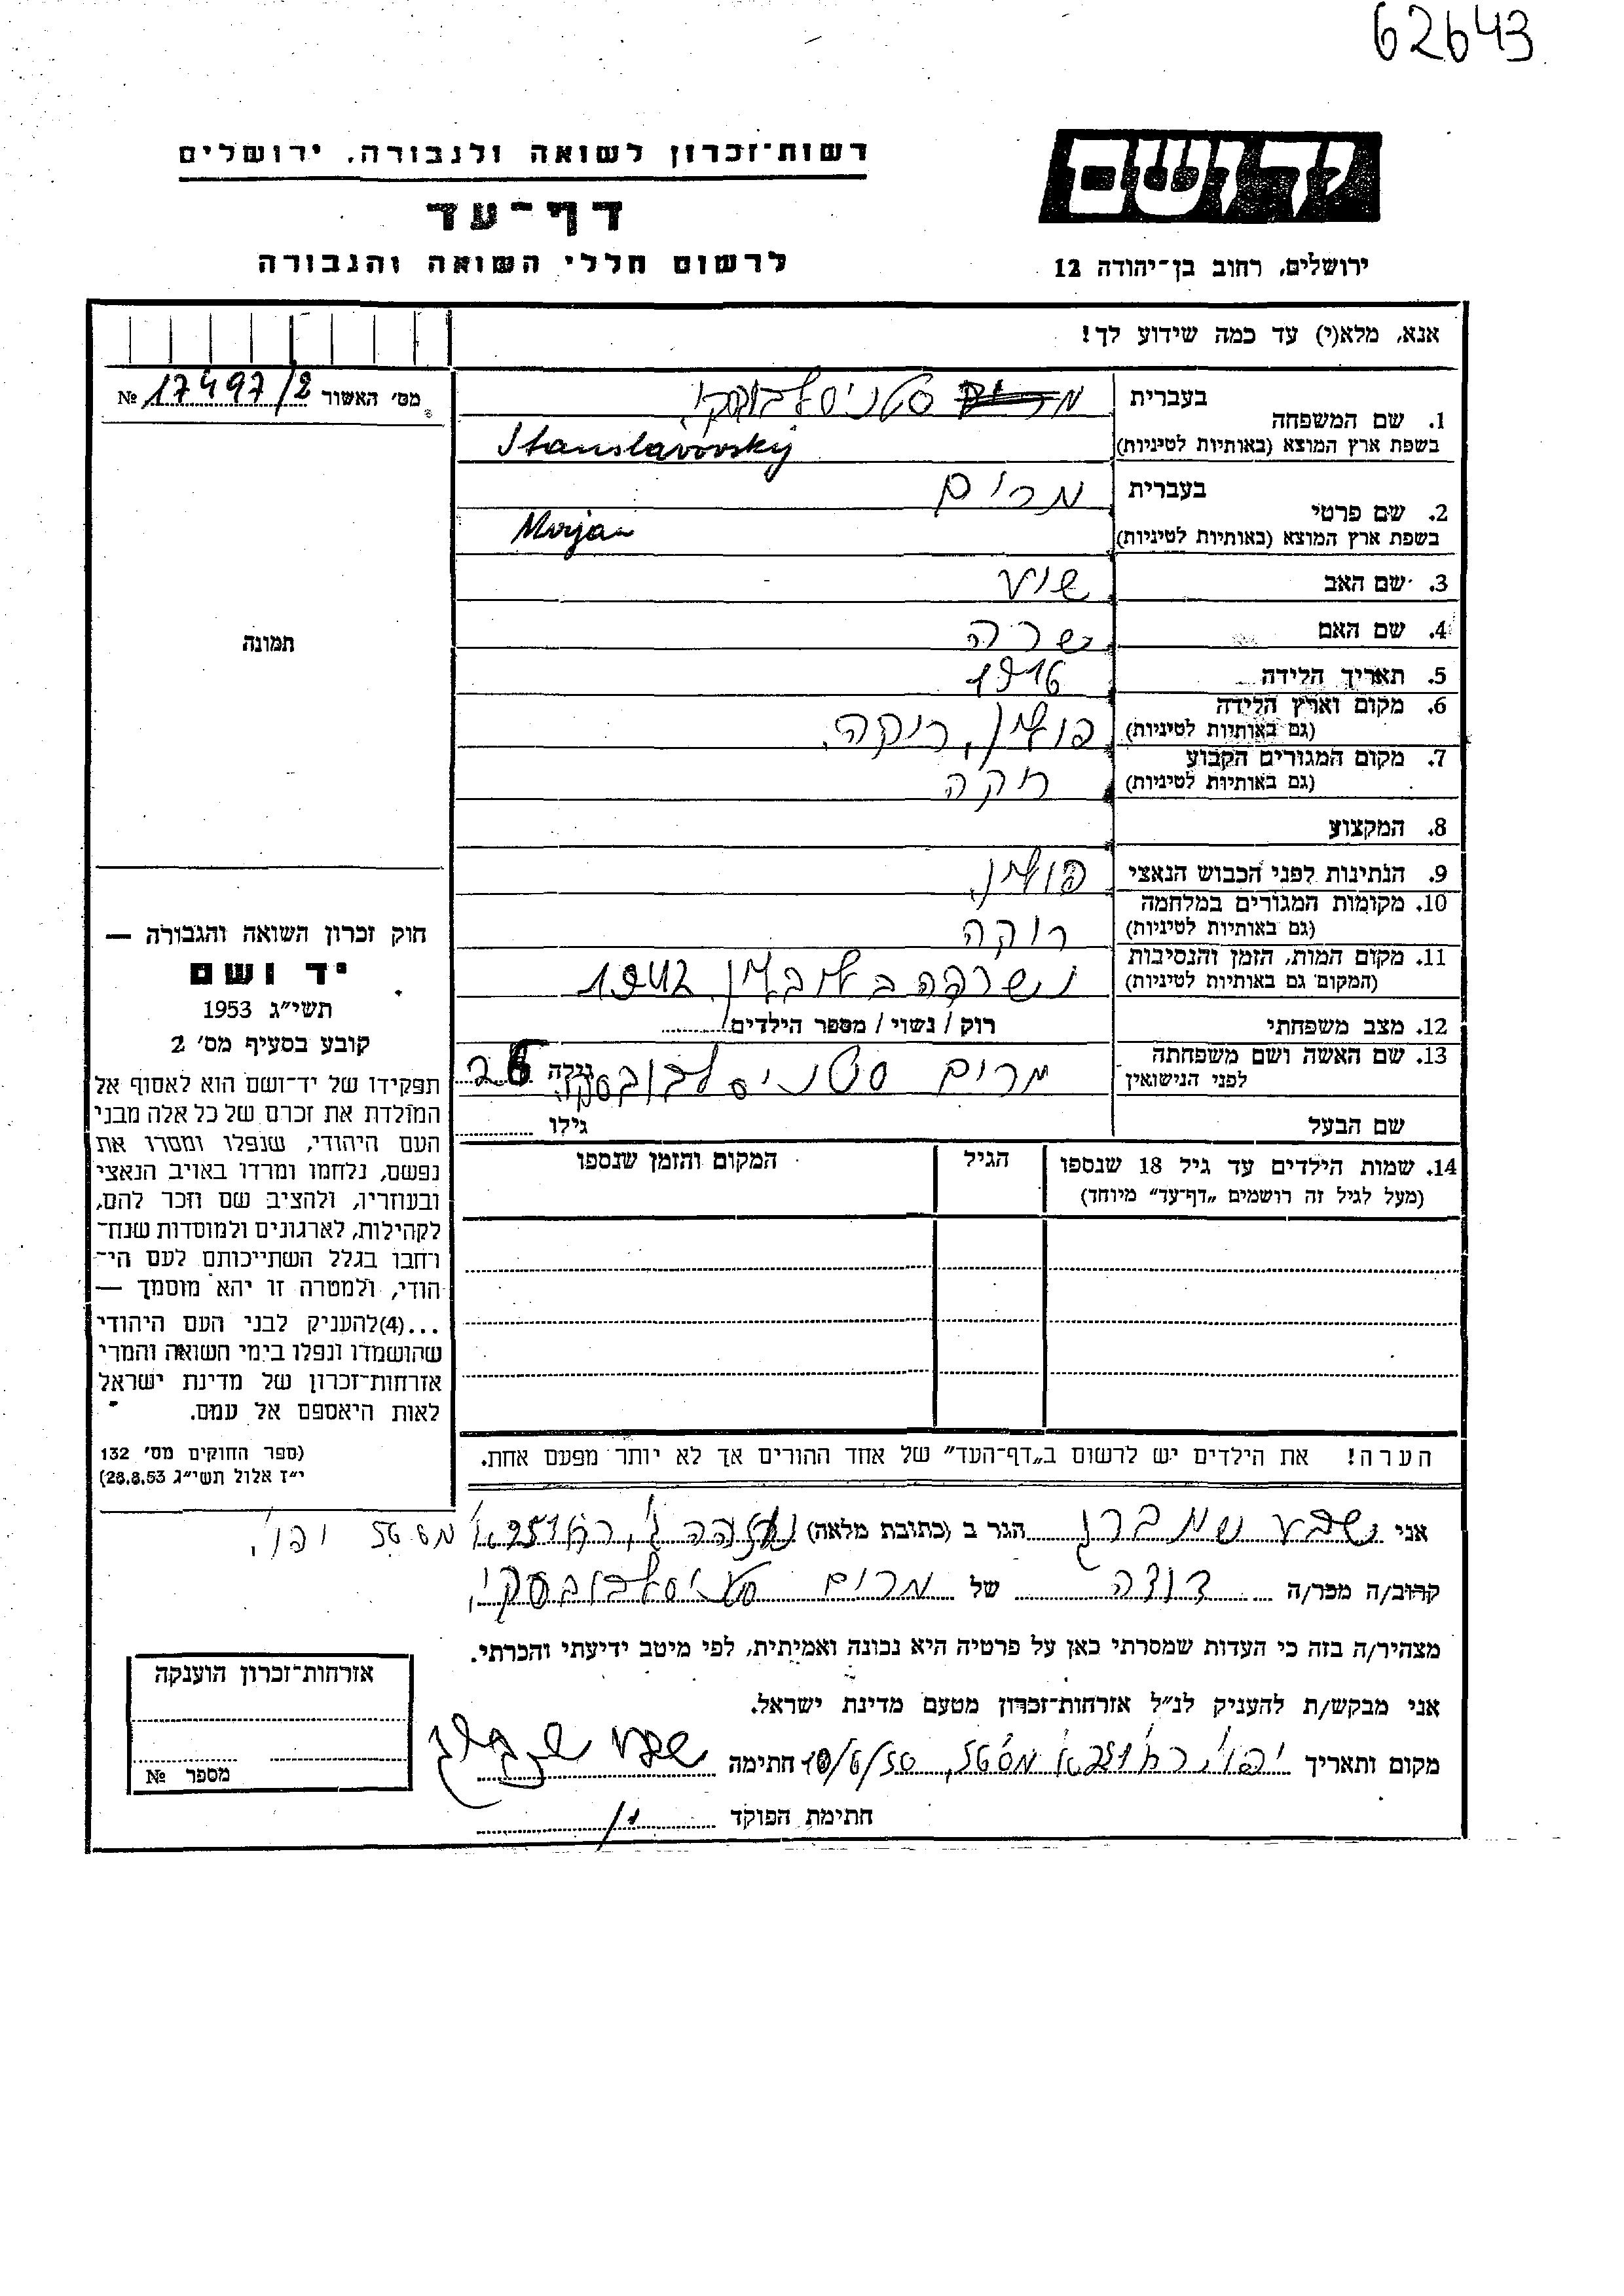 62643
רשות־זכרון לשואה ולגבורה, ירושלים
יד ושם
דף־עד
לרשום חללי השואה והגבורה
ירושלים, רחוב בן־יהודה 12
אנא, מלא(י) עד כמה שידוע לך!
מס׳ האשור 17497/2 №
1. שם המשפחה
בעברית סטניסלבוסקי
בשפת ארץ המוצא (באותיות לטיניות) Stanslavovsky
2. שם פרטי
בעברית מרים
בשפת ארץ המוצא (באותיות לטיניות)
3. שם האב
4. שם האם שרה
5. תאריך הלידה 1916
6. מקום וארץ הלידה
(גם באותיות לטיניות) פולין,
7. מקום המגורים הקבוע
(גם באותיות לטיניות)
8. המקצוע
9. הנתינות לפני הכבוש הנאצי פולין,
10. מקומות המגורים במלחמה
(גם באותיות לטיניות)
11. מקום המות, הזמן והנסיבות
(המקום גם באותיות לטיניות) נשרפה בלובלין, 1942
12. מצב משפחתי רוק / נשוי / מספר הילדים
13. שם האשה ושם משפחתה
לפני הנישואין מרים סטניסלבובסקי גילה 26
שם הבעל גילו
14. שמות הילדים עד גיל 18 שנספו
(מעל לגיל זה רושמים „דף־עד” מיוחד)
הגיל
המקום והזמן שנספו
הערה! את הילדים יש לרשום ב„דף־העד” של אחד ההורים אך לא יותר מפעם אחת.
תמונה
חוק זכרון השואה והגבורה —
יד ושם
תשי״ג 1953
קובע בסעיף מס׳ 2
תפקידו של יד־ושם הוא לאסוף אל
המולדת את זכרם של כל אלה מבני
העם היהודי, שנפלו ומסרו את
נפשם, נלחמו ומרדו באויב הנאצי
ובעוזריו, ולהציב שם וזכר להם,
לקהילות, לארגונים ולמוסדות שנח־
רחבו בגלל השתייכותם לעם הי־
הודי, ולמטרה זו יהא מוסמך —
...(4)להעניק לבני העם היהודי
שהושמדו ונפלו בימי השואה והמרי
אזרחות־זכרון של מדינת ישראל
לאות היאספם אל עמם.
(ספר החוקים מס׳ 132
י״ז אלול תשי״ג 28.8.53)
אני שבע הגר ב (כתובת מלאה)
קרוב/ה מכר/ה דודה של מרים סטניסלבובסקי,
מצהיר/ה בזה כי העדות שמסרתי כאן על פרטיה היא נכונה ואמיתית, לפי מיטב ידיעתי והכרתי.
אני מבקש/ת להעניק לנ״ל אזרחות־זכרון מטעם מדינת ישראל.
מקום ותאריך חתימה
חתימת הפוקד
אזרחות־זכרון הוענקה
מספר №